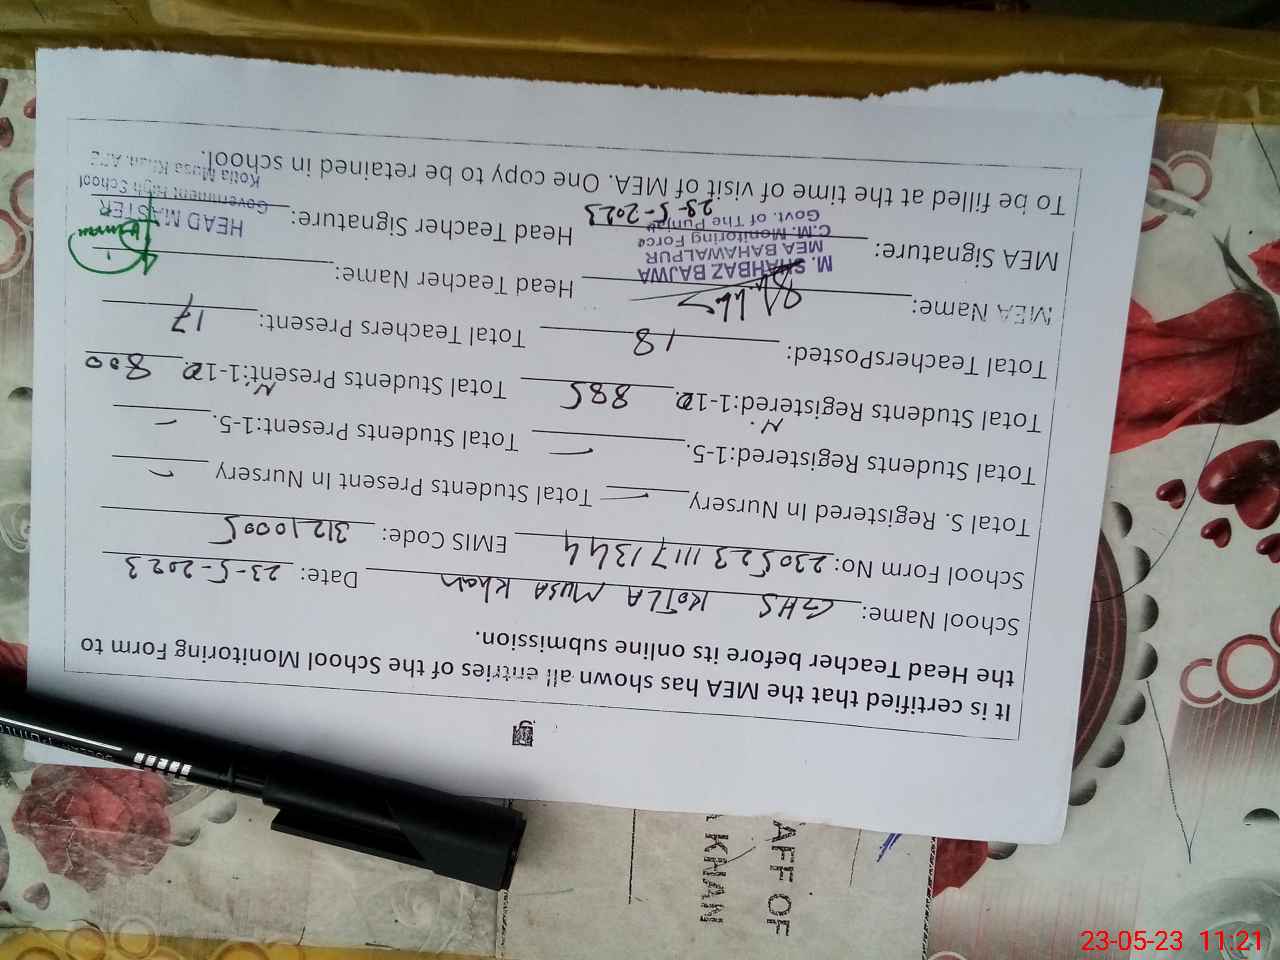 It is certified that the MEA has shown all entries of the School Monitoring Form to
the Head Teacher before its online submission.
School Name: GHS KOTLA MUSA Khan Date: 23-5-2023
School Form No: 23052311171344 EMIS Code: 31210005
Total S. Registered In Nursery — Total Students Present In Nursery —
Total Students Registered:1-5. — Total Students Present:1-5. —
Total Students Registered:1-10. 885 Total Students Present:1-10. 800
Total TeachersPosted: 18 Total Teachers Present: 17
MEA Name: Head Teacher Name:
M. SHAHBAZ BAJWA
MEA BAHAWALPUR
C.M. Monitoring Force
Govt. of The Punjab
MEA Signature: 23-5-2023 Head Teacher Signature:
HEAD MASTER
Government High School
Kotla Musa Khan
To be filled at the time of visit of MEA. One copy to be retained in school.
AFF OF
KHAN
23-05-23 11:21